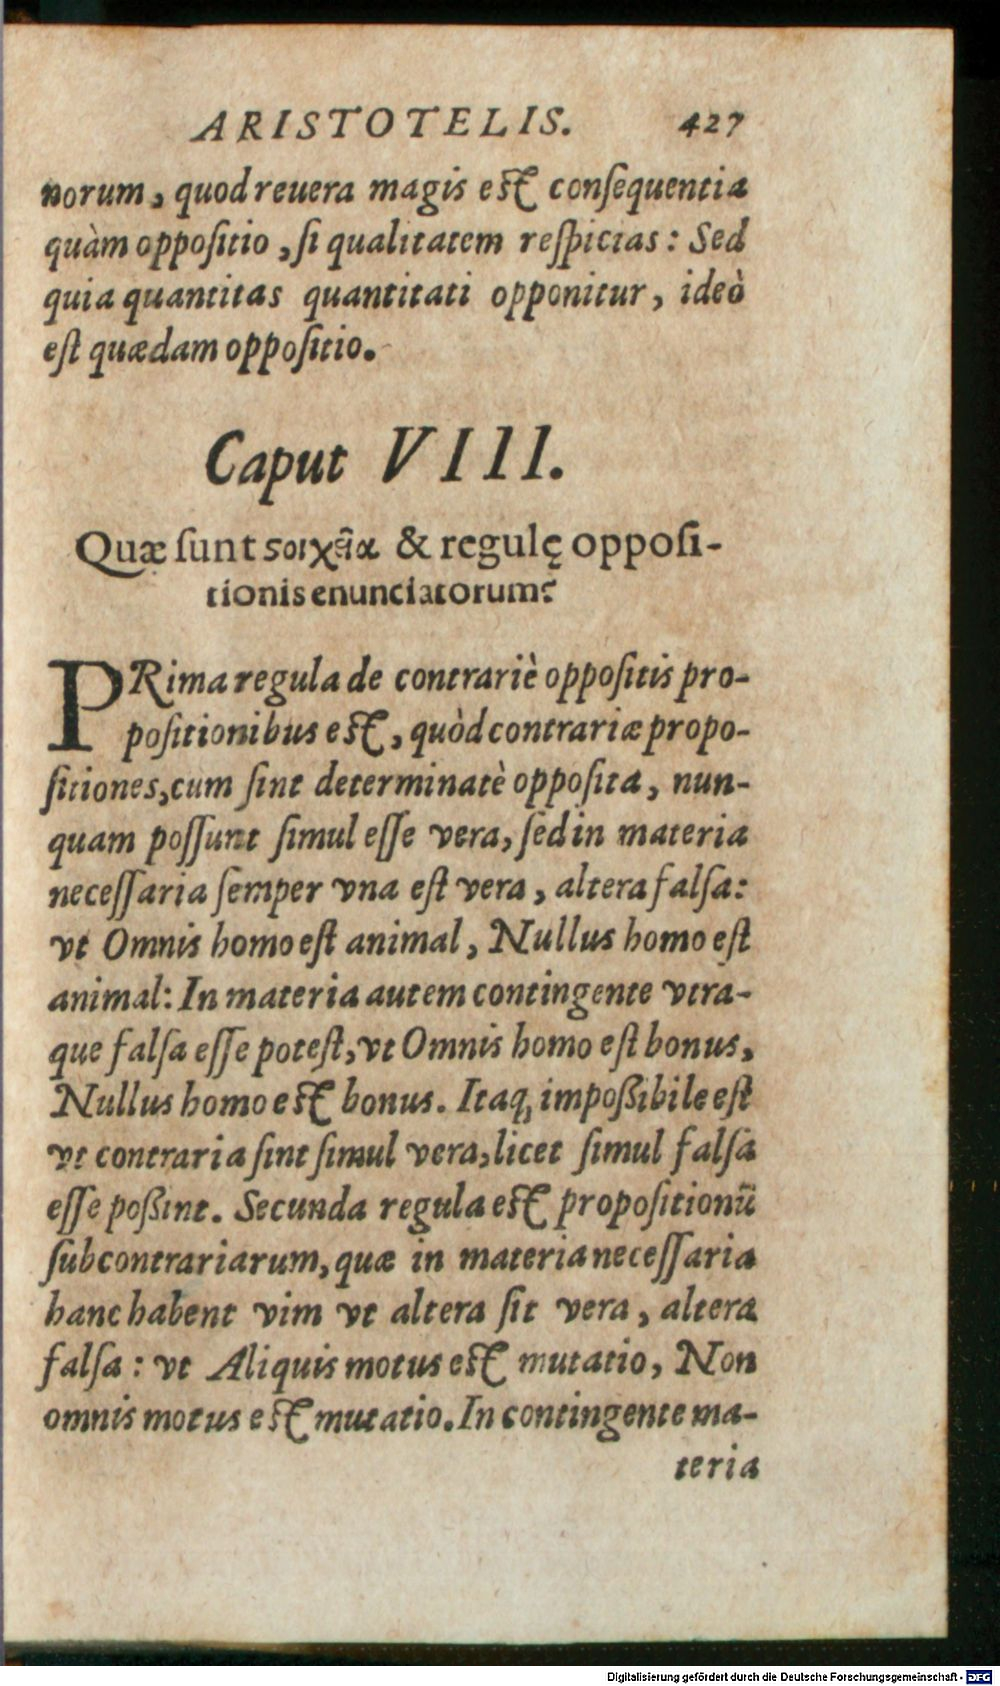 ARISTOTELIS. 427
norum, quod reuera magis est consequentia
quàm oppositio, si qualitatem respicias: Sed
quia quantitas quantitati opponitur, ideò
est quædam oppositio.
Caput VIII.
Quæ sunt ςοιχεῖα & regulę opposi-
tionis enunciatorum?
PRima regula de contrariè oppositis pro-
positionibus est, quòd contrariæ propo-
sitiones, cum sint determinatè opposita, nun-
quam possunt simul esse vera, sed in materia
necessaria semper vna est vera, altera falsa:
vt Omnis homo est animal, Nullus homo est
animal: In materia autem contingente vtra-
que falsa esse potest, vt Omnis homo est bonus,
Nullus homo est bonus. Itaq; impoßibile est
vt contraria sint simul vera, licet simul falsa
esse poßint. Secunda regula est propositionū
subcontrariarum, quæ in materia necessaria
hanc habent vim vt altera sit vera, altera
falsa: vt Aliquis motus est mutatio, Non
omnis motus est mutatio. In contingente ma-
teria
Digitalisierung gefördert durch die Deutsche Forschungsgemeinschaft - DFG